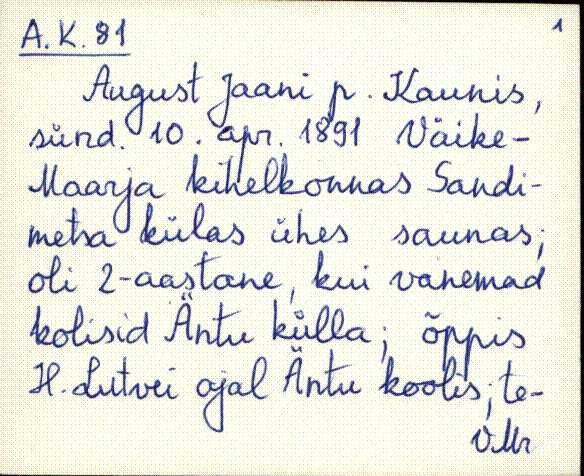 A. K. 81
1
August Jaani p. Kaunis,
sünd. 10. apr. 1891 Väike-
Maarja kihelkonnas Sandi-
metsa külas ühes saunas;
oli 2-aastane, kui vanemad
kolisid Äntu külla; õppis
H. Lutvei ajal Äntu koolis; te-
V.Mr